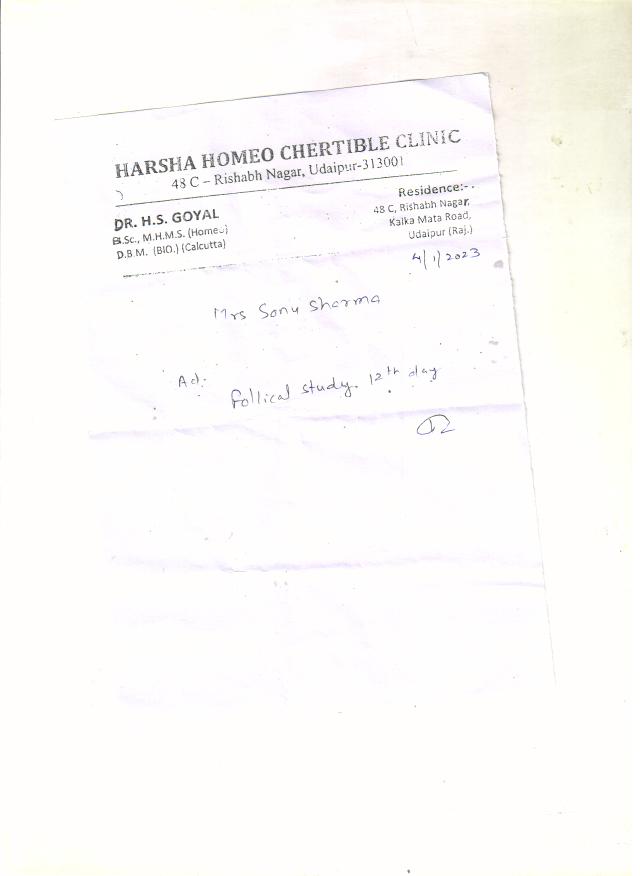 HARSHA HOMEO CHERTIBLE CLINIC
48 C – Rishabh Nagar, Udaipur-313001
DR. H.S. GOYAL
B.Sc., M.H.M.S. (Homeo)
D.B.M. (BIO.) (Calcutta)
Residence:-
48 C, Rishabh Nagar,
Kalka Mata Road,
Udaipur (Raj.)
4/1/2023
Mrs Sonu Sharma
Ad:
follical study. 12th day